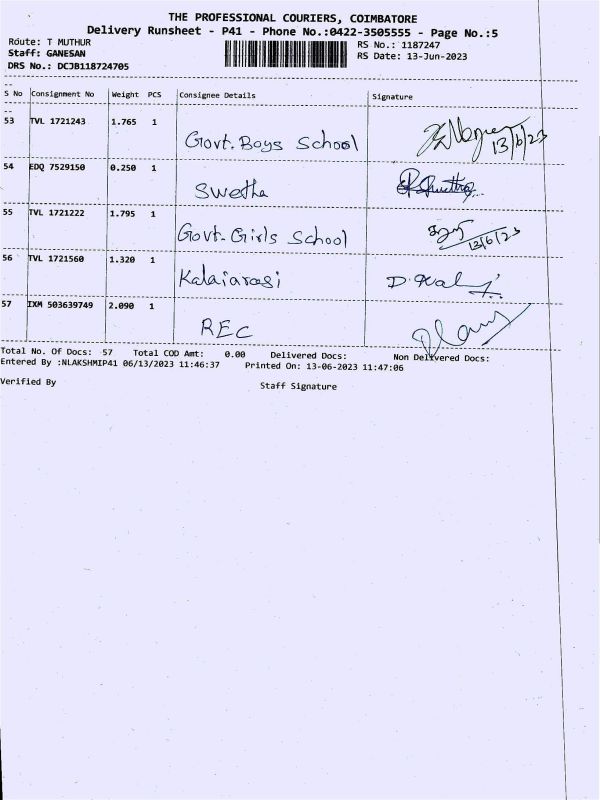 THE PROFESSIONAL COURIERS, COIMBATORE
Delivery Runsheet - P41 - Phone No.:0422-3505555 - Page No.:5
Route: T MUTHUR
RS No.: 1187247
Staff: GANESAN
RS Date: 13-Jun-2023
DRS No.: DCJB118724705
S No Consignment No Weight PCS Consignee Details Signature
53 TVL 1721243 1.765 1 Govt. Boys School 13/6/23
54 EDQ 7529150 0.250 1 Swetha
55 TVL 1721222 1.795 1 Govt. Girls School 13/6/23
56 TVL 1721560 1.320 1 Kalaiarasi
57 IXM 503639749 2.090 1 REC
Total No. Of Docs: 57 Total COD Amt: 0.00 Delivered Docs: Non Delivered Docs:
Entered By :NLAKSHMIP41 06/13/2023 11:46:37 Printed On: 13-06-2023 11:47:06
Verified By Staff Signature